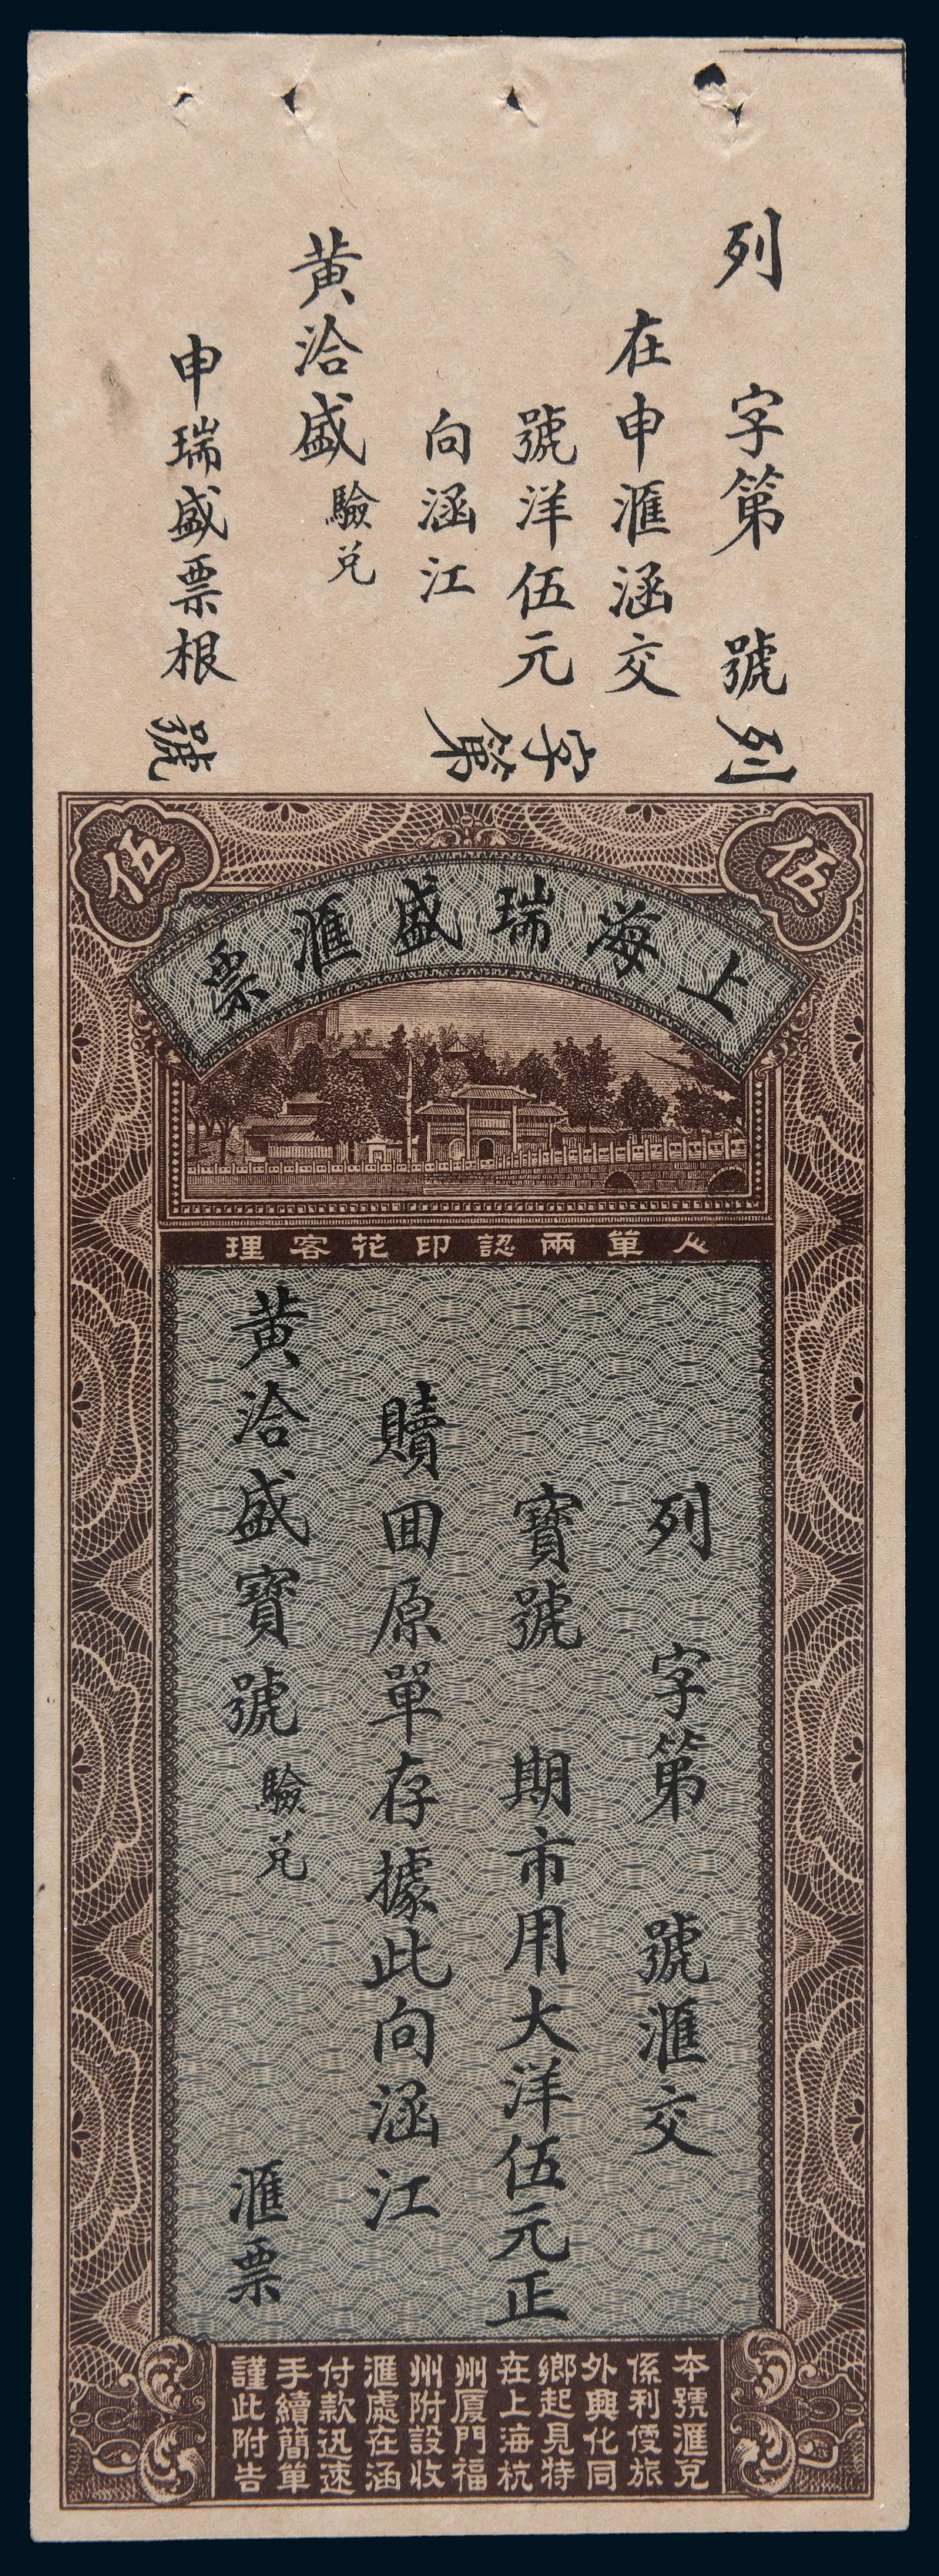 列字第號
在申滙涵交
號洋伍元
向涵江
黃洽盛驗兑
申瑞盛票根
列字第號
伍
伍
上海瑞盛滙票
人單兩認印花客理
列字第號滙交
寶號期市用大洋伍元正
贖囬原單存據此向涵江
黃洽盛寶號驗兑
滙票
本號滙兑
係利便旅
外興化同
鄉起見特
在上海杭
州厦門福
州附設收
滙處在涵
付款迅速
手續簡單
謹此附告